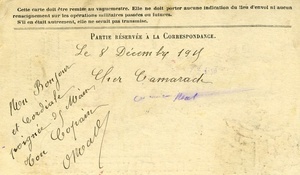 Cette carte doit être remise au vaguemestre. Elle ne doit porter aucune indication du lieu d'envoi ni aucun
renseignement sur les opérations militaires passées ou futures.
S'il en était autrement, elle ne serait pas transmise.
PARTIE RÉSERVÉE À LA CORRESPONDANCE.
Le 8 Décembre 191
Cher Camarade
Mon Bonjour
et Cordiale
poignée de Main
Ton Copain